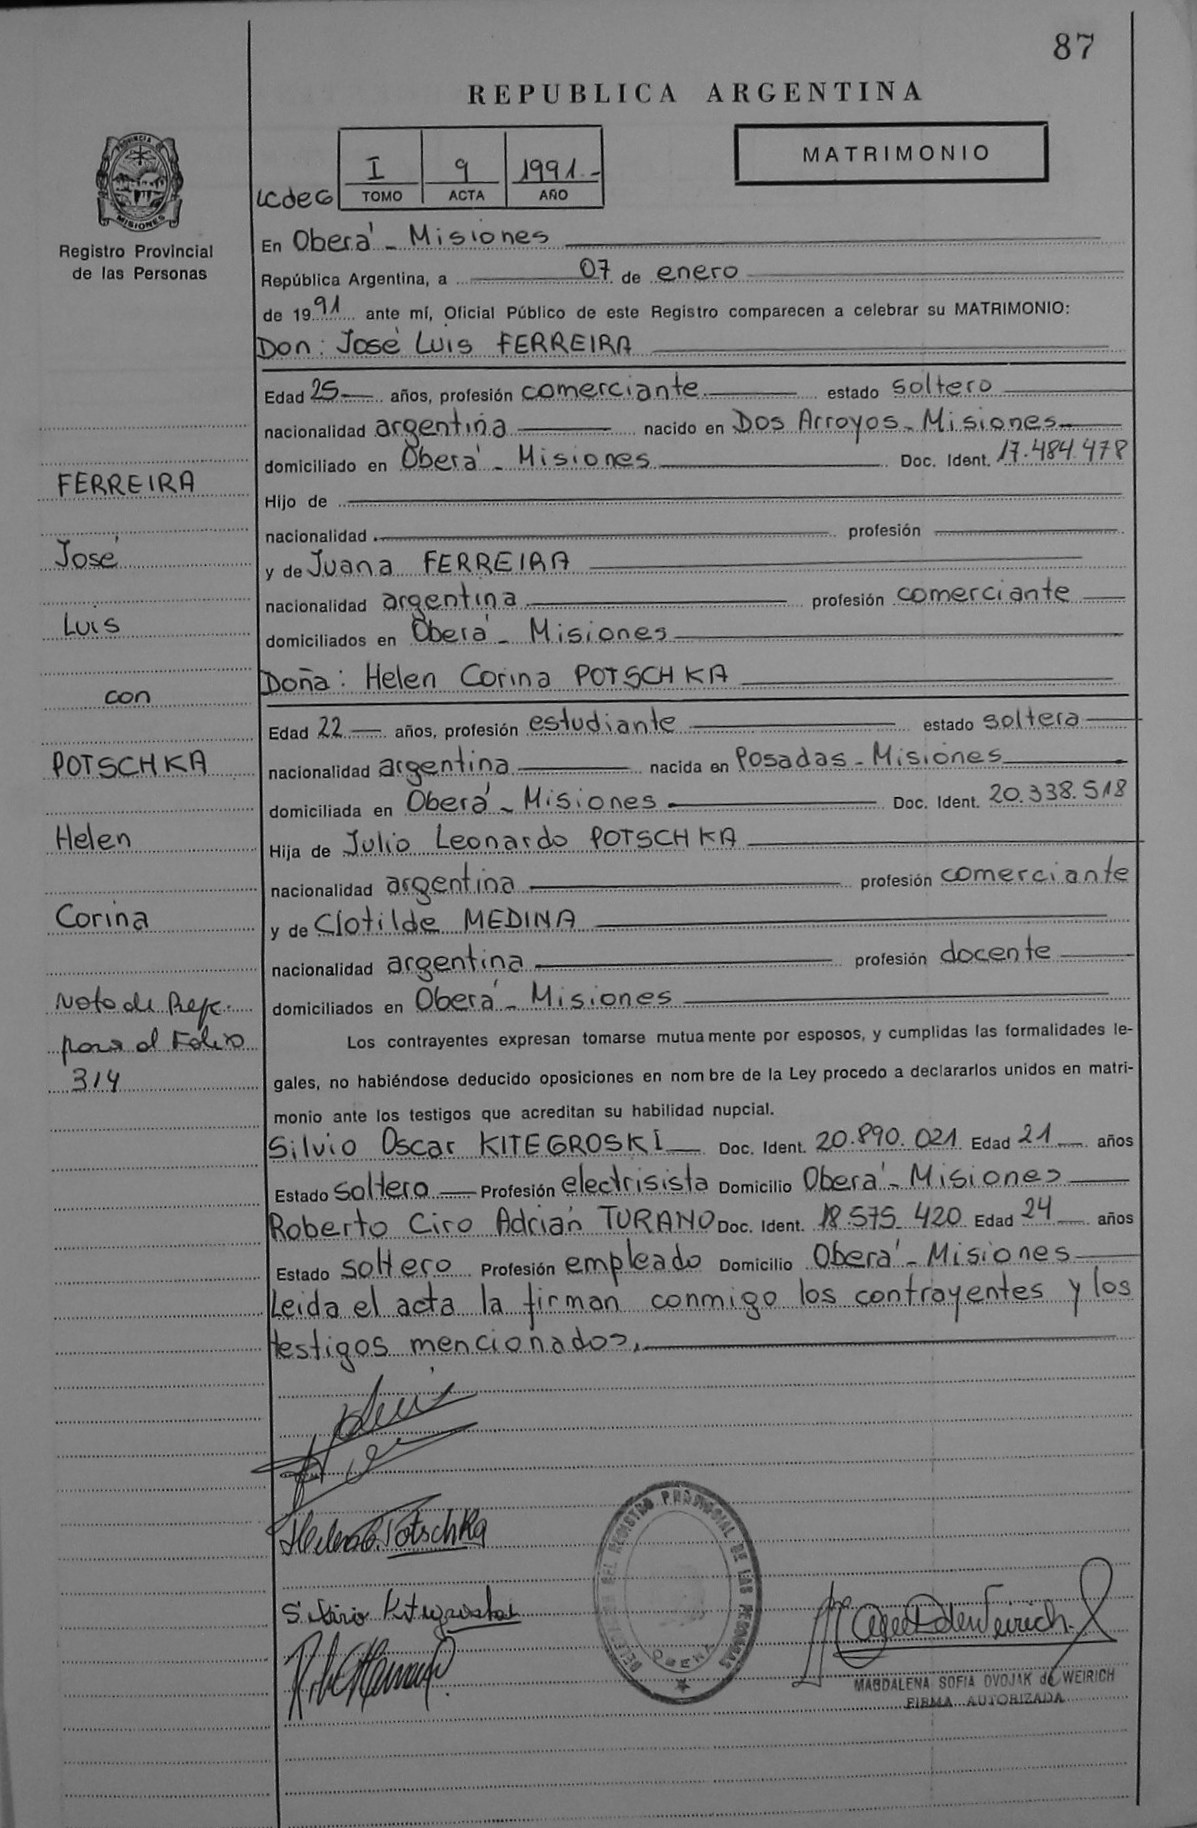 87
REPUBLICA ARGENTINA
MATRIMONIO
I 9 1991.-
TOMO ACTA AÑO
LCdeG
PROVINCIA DE MISIONES
Registro Provincial
de las Personas
En Oberá - Misiones
República Argentina, a 07 de enero
de 1991 ante mí, Oficial Público de este Registro comparecen a celebrar su MATRIMONIO:
Don: José Luis FERREIRA
Edad 25 años, profesión comerciante estado soltero
nacionalidad argentina nacido en Dos Arroyos - Misiones
domiciliado en Oberá - Misiones Doc. Ident. 17.484.478
Hijo de
nacionalidad profesión
y de Juana FERREIRA
nacionalidad argentina profesión comerciante
domiciliados en Oberá - Misiones
Doña: Helen Corina POTSCHKA
Edad 22 años, profesión estudiante estado soltera
nacionalidad argentina nacida en Posadas - Misiones
domiciliada en Oberá - Misiones Doc. Ident. 20.338.518
Hija de Julio Leonardo POTSCHKA
nacionalidad argentina profesión comerciante
y de Clotilde MEDINA
nacionalidad argentina profesión docente
domiciliados en Oberá - Misiones
Los contrayentes expresan tomarse mutuamente por esposos, y cumplidas las formalidades le-
gales, no habiéndose deducido oposiciones en nombre de la Ley procedo a declararlos unidos en matri-
monio ante los testigos que acreditan su habilidad nupcial.
Silvio Oscar KITEGROSKI Doc. Ident. 20.890.021 Edad 21 años
Estado soltero Profesión electrisista Domicilio Oberá - Misiones
Roberto Ciro Adrián TURANO Doc. Ident. 18.575.420 Edad 24 años
Estado soltero Profesión empleado Domicilio Oberá - Misiones
Leida el acta la firman conmigo los contrayentes y los
testigos mencionados.
FERREIRA
José
Luis
con
POTSCHKA
Helen
Corina
Nota de Refe.
para al Folio
314
Helen C. Potschka
DEL REGISTRO PROVINCIAL DE LAS PERSONAS
OBERA
MAGDALENA SOFIA DVOJAK de WEIRICH
FIRMA AUTORIZADA